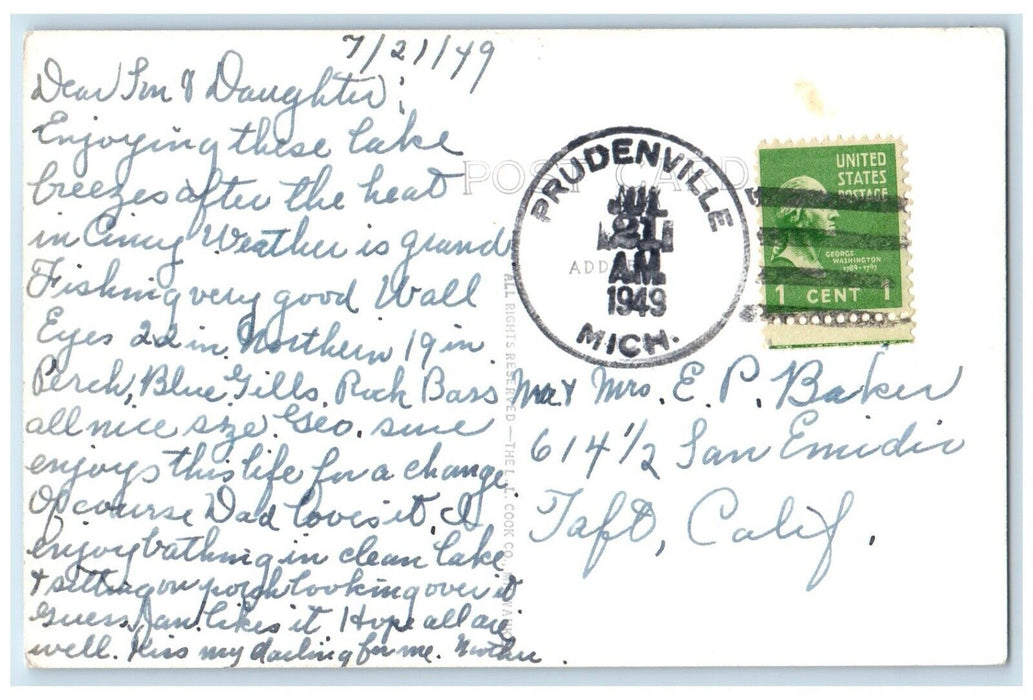 7/21/49
Dear Son & Daughter;
Enjoying these lake
breezes after the heat
in Cincy Weather is grand
Fishing very good Wall
Eyes 22 in Northern 19 in
Perch, Blue Gills, Rock Bass
all nice size. Geo. sure
enjoys this life for a change.
Of course Dad loves it. I
enjoy bathing in clean lake
& sitting on porch looking over it
Guess Jan. likes it Hope all are
well. Kiss my darling for me. Mother.
POST CARD
ADDRESS
PRUDENVILLE
JUL
21
AM
1949
MICH.
UNITED
STATES
POSTAGE
GEORGE
WASHINGTON
1789-1797
1 CENT 1
ALL RIGHTS RESERVED — THE L. L. COOK CO.,
Mr. & Mrs. E. P. Baker
614 1/2 San Emidio
Taft, Calif.